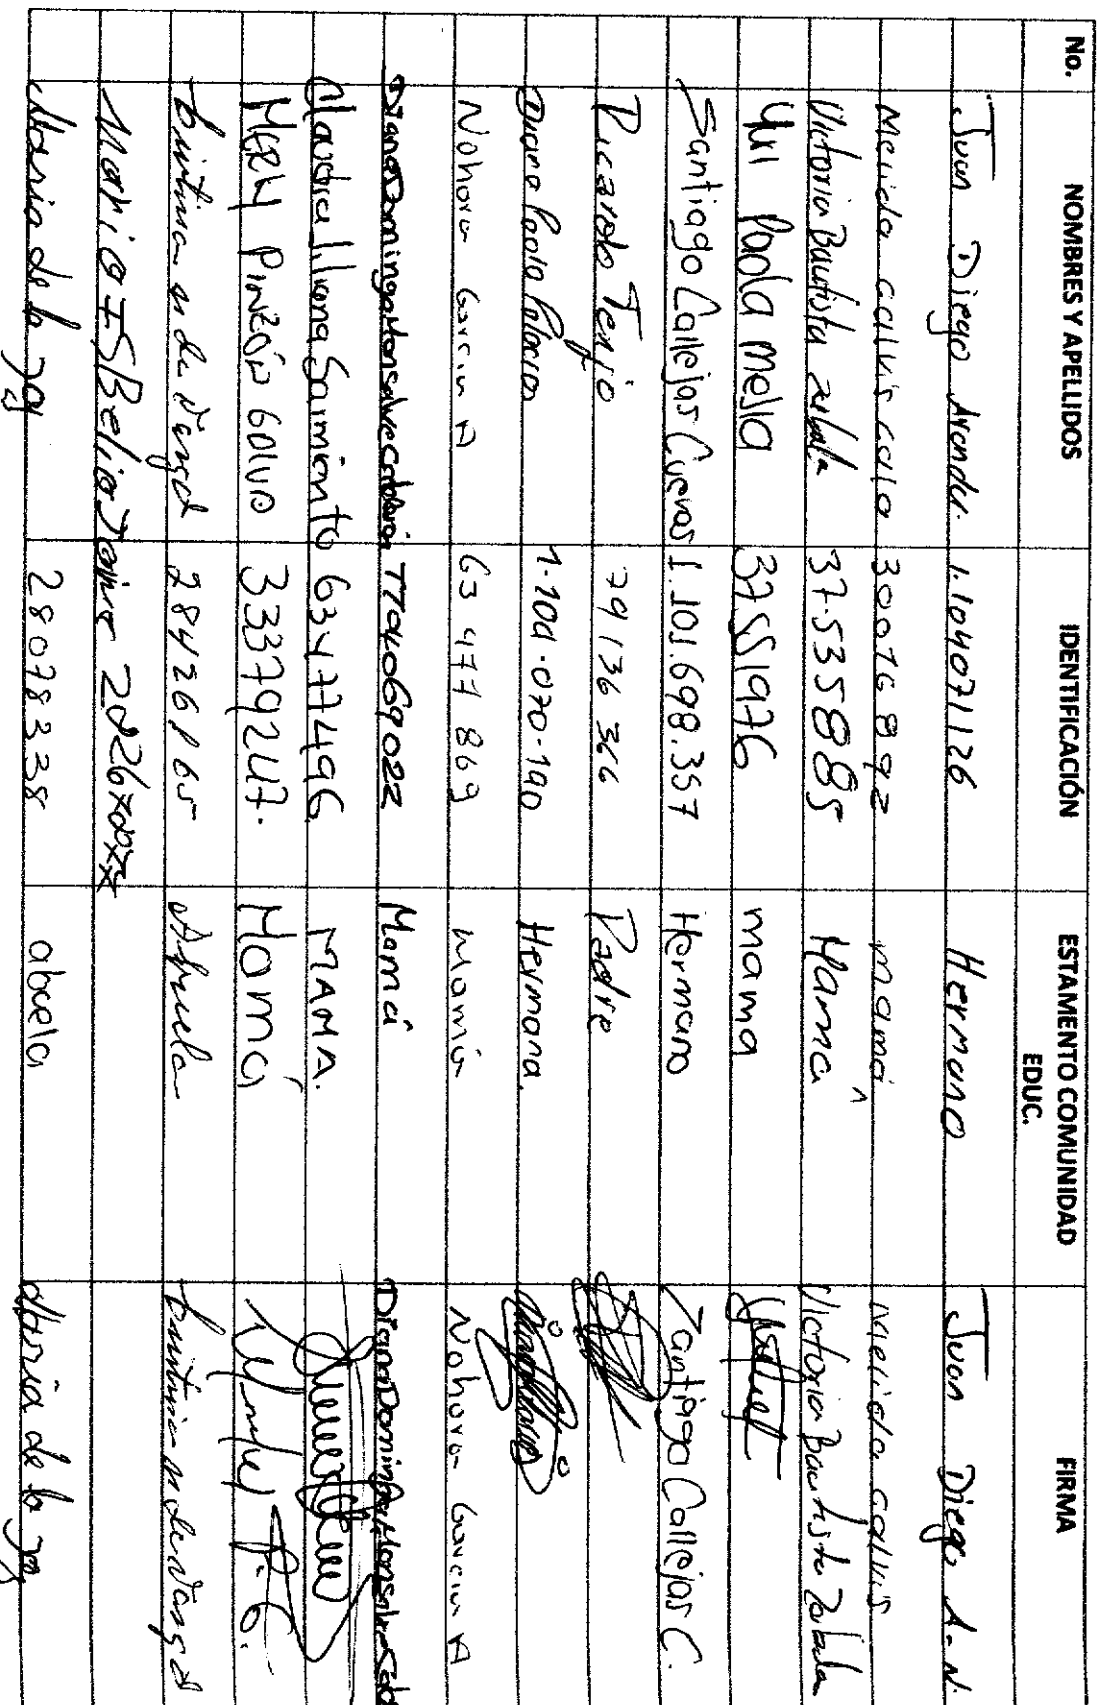 No. NOMBRES Y APELLIDOS IDENTIFICACIÓN ESTAMENTO COMUNIDAD EDUC. FIRMA
Juan Diego 1.104071126 Hermano Juan Diego A.N.
Melida Galvis 30076892 mamá melida galvis
Victoria Bautista 37.535885 Mamá Victoria Bautista
Yuri Paola mejia 37551976 mama
Santiago Callejas Cuevas 1.101.698.357 Hermano Santiago Callejas C.
Ricardo Tenjo 79136366 Padre
Paola 070.190 Hermana
Nohora Garcia A 63 477 869 Mamá Nohora Garcia A
Diana Dominga Monsalve T704069022 Mamá Diana Dominga Monsalve
Claudia Liliana Sarmiento 63477496 MAMA.
MERY PINZÓN 33379247. Mamá
28426165 Abuela
Maria ISBelia
Maria de la 28078338 abuela Maria de la